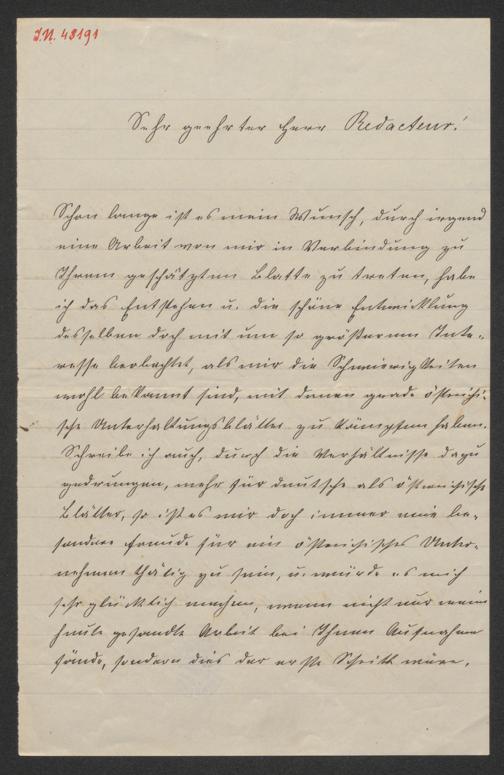 I.N. 48191
Sehr geehrter Herr Redacteur!
Schon lange ist es mein Wunsch, durch irgend
eine Arbeit von mir in Verbindung zu
Ihrem geschätzten Blatte zu treten, habe
ich das Entstehen u. die schöne Entwicklung
desselben doch mit um so größerem Inte-
resse beobachtet, als mir die Schwierigkeiten
wohl bekannt sind, mit denen grade östreichi-
sche Unterhaltungsblätter zu kämpfen haben.
Schreibe ich auch, durch die Verhältnisse dazu
gedrungen, mehr für deutsche als östreichische
Blätter, so ist es mir doch immer eine be-
sondere Freude für ein östreichisches Unter-
nehmen thätig zu sein, u. würde es mich
sehr glücklich machen, wenn nicht nur meine
heute gesandte Arbeit bei Ihnen Aufnahme
fände, sondern dies der erste Schritt wäre,